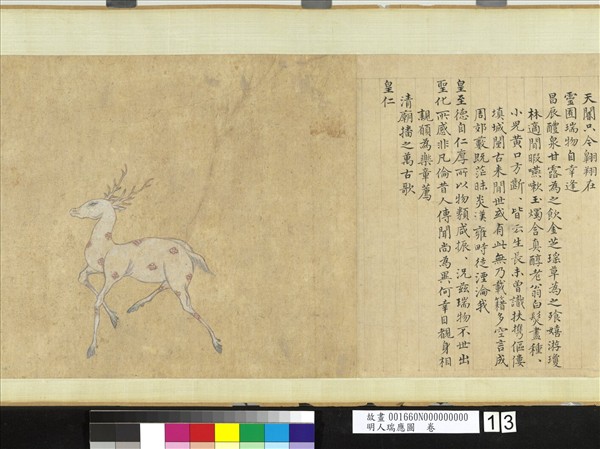 天闈只今翱翔在
靈囿瑞物自幸逢
昌辰醴泉甘露為之飲金芝瑤草為之飧嬉游瓊
林適閒暇嚥嗽玉燭含真醇老翁白髮盡種種
小兒黃口方齗齗皆云生長未曾識扶携傴僂
填城闉古來間世或有此無乃載籍多空言成
周郊藪既茫昧炎漢雍時徒湮淪我
皇至德自仁厚所以物類咸振振況茲瑞物不世出
聖化所感非凡倫昔人傳聞尚為異何幸目覩身相
親願為樂章薦
清廟播之萬古歌
皇仁
故畫 001660N000000000
明人瑞應圖 卷
13